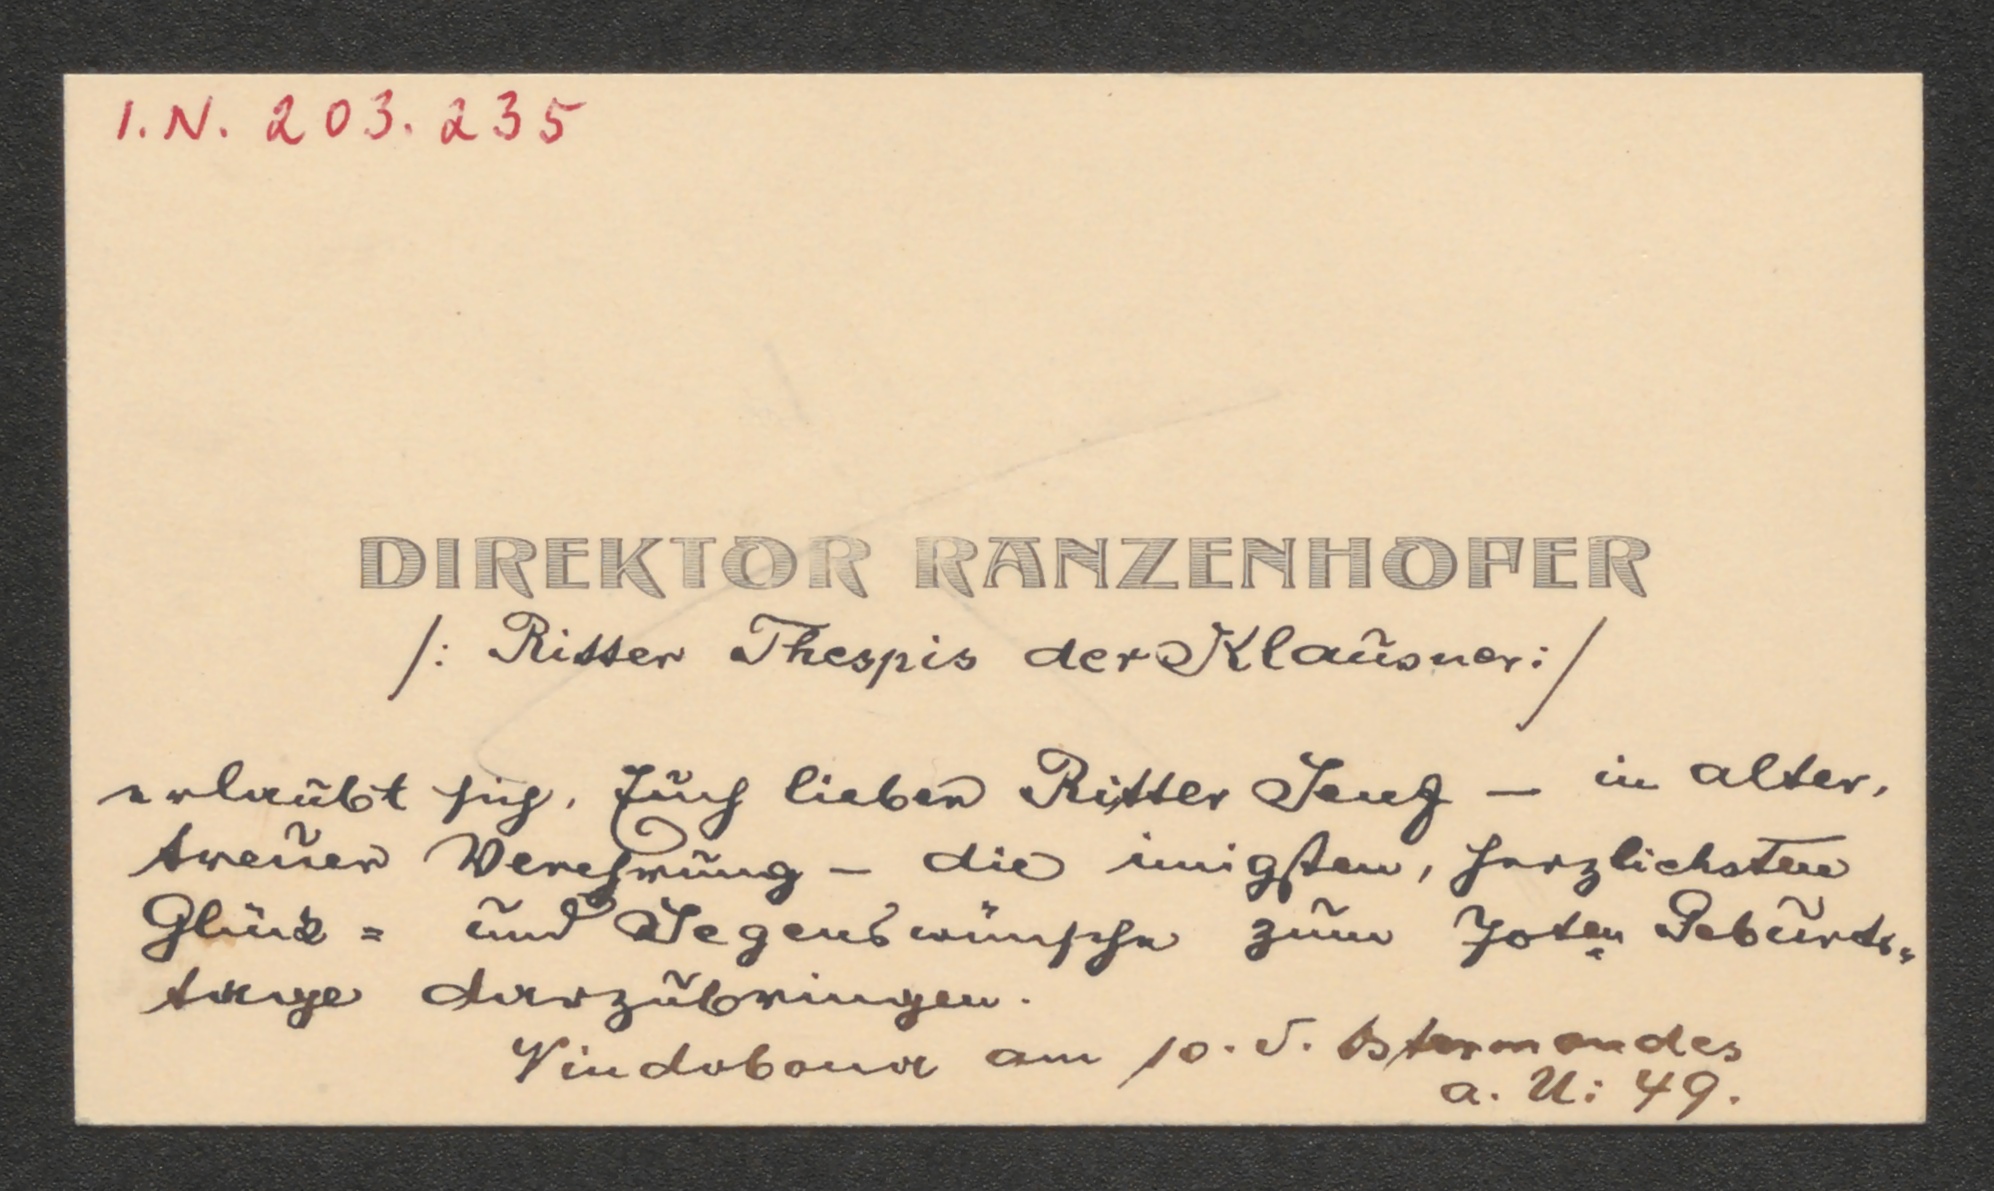 I.N. 203.235
DIREKTOR RANZENHOFER
/: Ritter Thespis der Klausner :/
erlaubt sich, Euch lieben Ritter – in alter,
treuer Verehrung – die inigsten, herzlichsten
Glück= und Segenswünsche zum 70ten Geburts=
tage darzubringen.
Vindobona am 10. d. Ostermondes
a. U: 49.